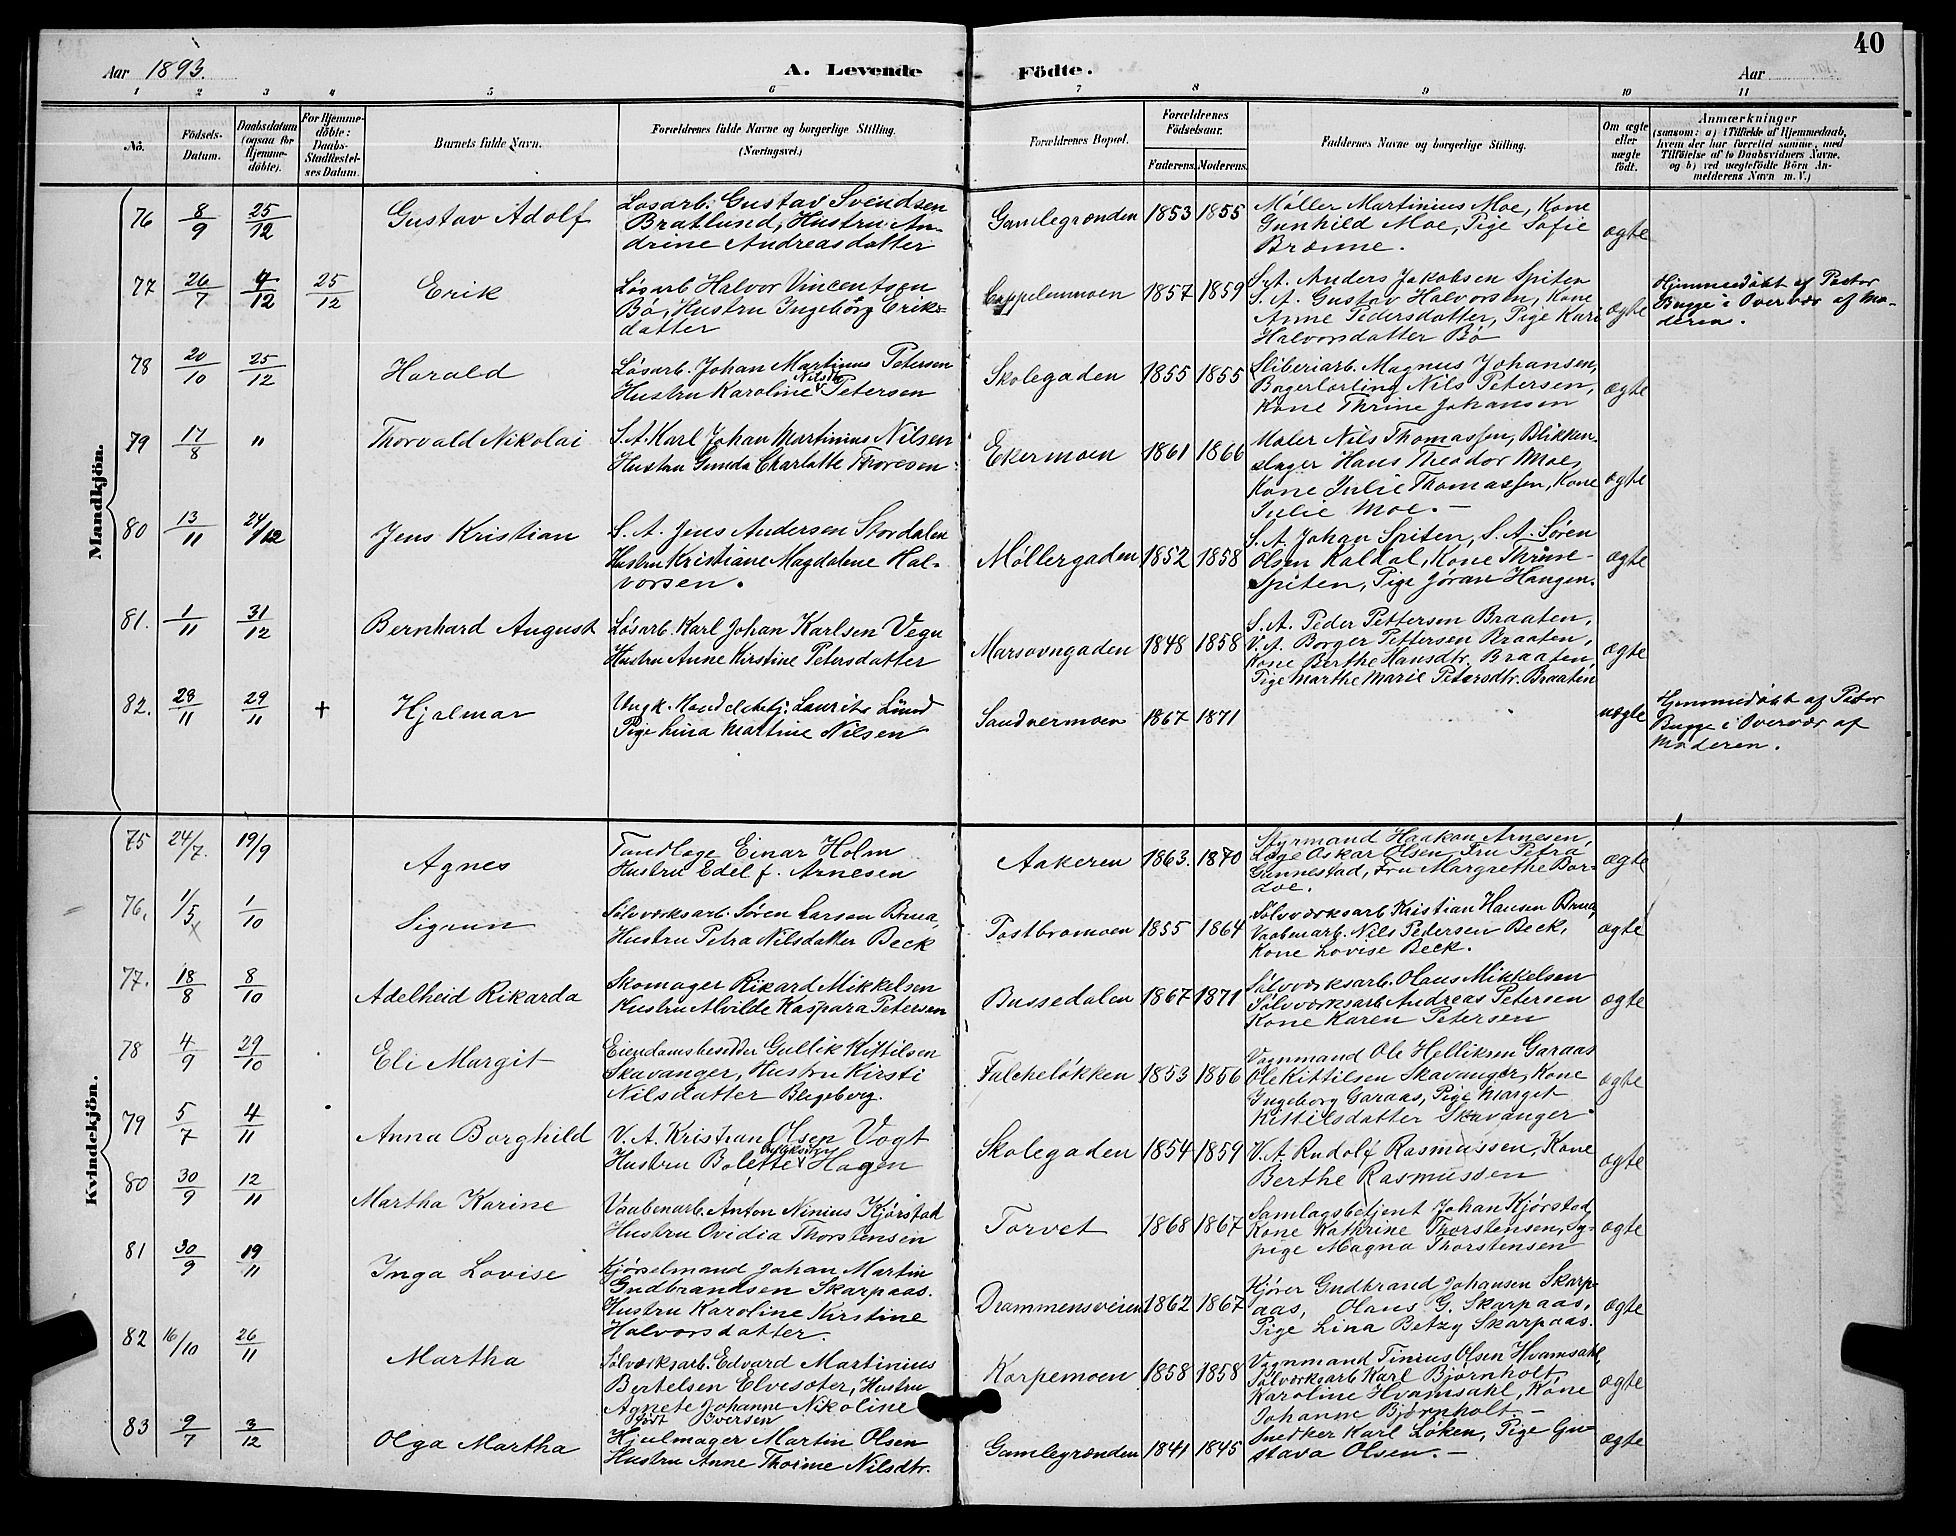 40
Aar 1893.
A. Levende Födte.
Aar
1 2 3 4 5 6 7 8 9 10 11
No.
Födsels-Datum.
Daabsdatum (ogsaa for Hjemme-döbte).
For Hjemme-döbte: Daabs-Stadfæstel-ses Datum.
Barnets fulde Navn.
Forældrenes fulde Navne og borgerlige Stilling. (Næringsvei.)
Forældrenes Bopæl.
Forældrenes Födselsaar.
Faderens. Moderens.
Faddernes Navne og borgerlige Stilling.
Om ægte eller uægte födt.
Anmærkninger
(saasom: a) i Tilfælde af Hjemmedaab, hvem der har forrettet samme, med Tilföielse af to Daabsvidners Navne, og b) ved uægtefödte Börn An-melderens Navn m. V.)
Mandkjön.
76 8/9 25/12 Gustav Adolf
Løsarb. Gustav Svendsen
Bratlund, Hustru An-
drine Andreasdatter
Gamlegrænden 1853 1855
Møller Martinius Moe, Kone
Gunhild Moe, Pige Sofie
Brænne.
ægte
77 26/7 9/12 25/12 Erik
Løsarb Halvor Vincentsen
Bö, Hustru Ingeborg Eriks-
datter
Cappelenmoen 1857 1859
S.A. Anders Jakobsen Spiten
S. A. Gustav Halvorsen, Kone
Anne Pedersdatter, Pige Kari
Halvorsdatter Bö
ægte
Hjemmedøbt af Pastor
Bugge i Overvær af Mo-
deren.
78 20/10 25/12 Harald
Løsarb. Johan Martinus Petersen
Hustru Karoline Nilsdtr Petersen
Skolegaden 1855 1855
Sliberiarb. Magnus Johansen,
Bagerlærling Nils Petersen,
Kone Thrine Johansen
ægte
79 17/8 " Thorvald Nikolai
S.A. Karl Johan Martinius Nilsen
Hustru Gunda Charlotte Thoresen
Ekermoen 1861 1866
Maler Nils Thomassen, Blikken-
slager Hans Theodor Moe,
Kone Julie Thomassen, Kone
Julie Moe. -
ægte
80 13/11 24/12 Jens Kristian
S. A. Jens Andersen Stordalen
Hustru Kristiane Magdalene Hal-
vorsen.
Møllergaden 1852 1858
S.A. Johan Spiten, S. A. Søren
Olsen Kaldal, Kone Thrine
Spiten, Pige Jøran Haugen.
ægte
81. 1/11 31/12 Bernhard August
Løsarb. Karl Johan Karlsen Vegu
Hustru Anne Kirstine Petersdatter
Marsovngaden 1848 1858
S. A. Peder Pettersen Braaten,
V. A. Borger Pettersen Braaten,
Kone Berthe Hansdtr. Braaten,
Pige Marthe Marie Petersdtr. Braaten
ægte
82. 28/11 29/11 + Hjalmar
Ungk. Handelsbetj. Laurits Lund
Pige Lina Martine Nilsen
Sandvermoen 1867 1871
uægte
Hjemmedøbt af Pastor
Bugge i Overvær af
Moderen.
Kvindekjön.
75 24/7. 19/9 Agnes
Tandlæge Einar Holm
Hustru Edel f. Arnesen
Aakeren 1863. 1870
Styrmand Haakon Arnesen,
Læge Oskar Olsen, Fru Petra
Gunnestad, Fru Margrethe Bor-
doe.
ægte
76, 1/5 1/10 Sigrun
Sølvværksarb. Søren Larsen Brua,
Hustru Petra Nilsdatter Beck
Postbromoen 1855 1864
Sølvværksarb Kristian Hansen Brua,
Vaabenarb. Nils Pedersen Beck,
Kone Lovise Beck.
ægte
77. 18/8 8/10 Adelheid Rikarda
Skomager Rikard Mikkelsen
Hustru Alvilde Kaspara Petersen
Bussedalen 1867 1871
Sølvværksarb. Olaus Mikkelsen
Sølvværksarb Andreas Petersen
Kone Karen Petersen
ægte
78 4/9 29/10 Eli Margit
Eiendomsbesidder Gullik Kittilsen
Skavanger, Hustru Kirsti
Nilsdatter Bligeberg.
Falcheløkken 1853 1856
Vognmand Ole Helliksen Garaas
Ole Kittilsen Skavanger, Kone
Ingeborg Garaas, Pige Margit
Kittilsdatter Skavanger
ægte
79 5/7 4/11 Anna Borghild
V. A. Kristian Olsen Vogt
Hustru Bolette Hagen
Skolegaden 1854 1859
V. A. Rudolf Rasmussen, Kone
Berthe Rasmussen
ægte
80 30/9 12/11 Martha Karine
Vaabenarb. Anton Ninius Kjørstad
Hustru Ovidia Thorstensen
Torvet 1868 1867
Samlagsbetjent Johan Kjørstad,
Kone Kathrine Thorstensen, Sy-
pige Magna Thorstensen
ægte
81 30/9 19/11 Inga Lovise
Kjørselmand Johan Martin
Gudbrandsen Skarpaas.
Hustru Karoline Kirstine
Halvorsdatter.
Drammensveien 1862 1867
Kjører Gudbrand Johansen Skarp-
aas, Olaus G. Skarpaas,
Pige Lina Betzy Skarpaas.
ægte
82 16/10 26/11 Martha
Sølværksarb. Edvard Martinius
Bertelsen Elvesæter, Hustru
Agnete Johanne Nikoline
født Iversen
Korpemoen 1858 1858
Vognmand Tinius Olsen Hvamsahl,
Sølvværksarb Karl Bjørnholt,
Karoline Hvamsahl, Kone
Johanne Bjørnholt -
ægte
83 9/7 3/12 Olga Martha
Hjulmager Martin Olsen
Hustru Anne Thorine Nilsdtr.
Gamlegrænden 1841 1845
Snedker Karl Løken, Pige Gu-
stava Olsen. -
ægte